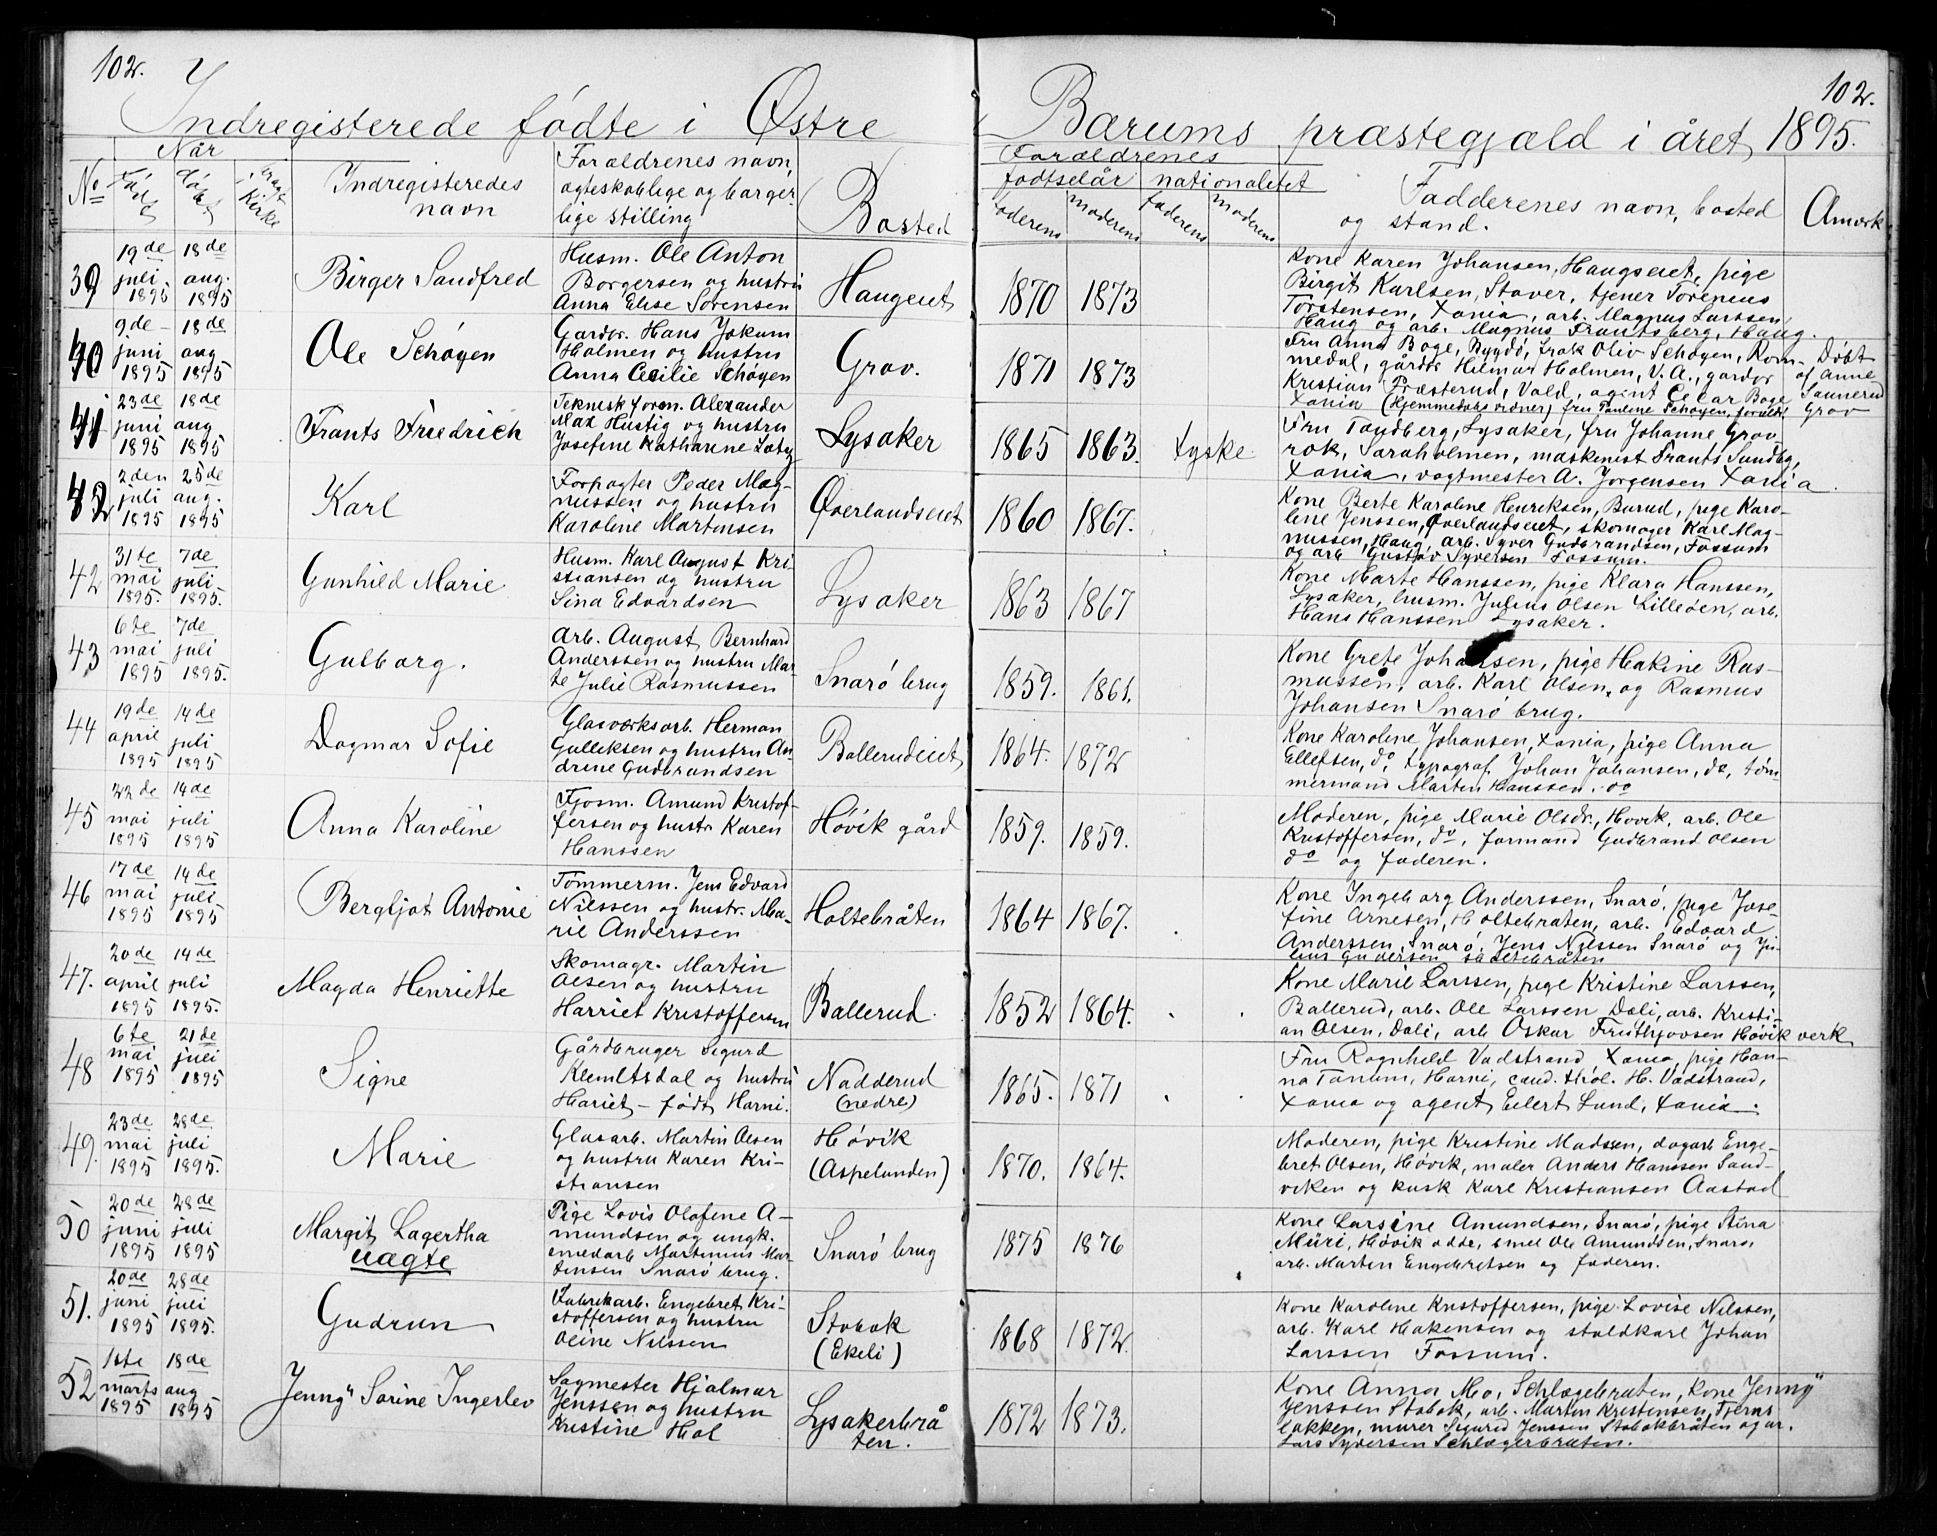 102.
102.
Indregisterede fødte i Østre Bærums præstegjæld i året 1895.
No
Når
født
døbt
i Kirke
Indregisteredes navn
Forældrenes navn,
ægteskablige og borger-
lige stilling
Bosted
Forældrenes
fødselår
nationalitet
faderens
moderens
faderens
moderens
Fadderenes navn, bosted
og stand.
Anmærk
39
19de juli 1895
18de aug. 1895
Birger Sandfred
Husm. Ole Anton
Borgersen og hustru
Anna Elise Sørensen
Haugeiet
1870
1873
Kone Karen Johansen, Haugseiet, pige
Birgit Karlsen, Staver, tjener
Torstensen, Xania, arb. Magnus Larssen
Haug og arb. Magnus Frantsberg, Haug.
40
9de juni 1895
18de aug 1895
Ole Schøyen
Gardbr. Hans Jokum
Holmen og hustru
Anna Cecilie Schøyen
Grav.
1871
1873
Fru Anna Boge, Bygdø, frøk Oliv Schøyen, Rom-
medal, gårdbr Hilmar Holmen, V. A., gardbr
Kristian Præsterud, Vold, agent Boge
Xania (Hjemmedøbs ordner) fru Pauline Schøyen
Døbt
af Anne
Grav
41
23de juni 1895
18de aug 1895
Frants Friedrich
Teknisk foren. Alexander
Max Hustig og hustru
Josefine Katharine
Lysaker
1865
1863.
tyske
Fru Tandberg, Lysaker, fru Johanne Grav
rok, Saraholmen, maskenist Frants Sundby,
Xania, vagtmester A. Jørgensen Xania.
42
2den juli 1895
25de aug. 1895
Karl
Forpagter Peder Mag-
nussen og hustru
Karoline Martinsen
Øverlandseiet
1860
1867.
Kone Berte Karoline Henriksen, Burud, pige Karo-
line Jenssen, Øverlandseiet, skomager Karl Mag-
nussen, Haug, arb. Syver Gudbrandsen, Fossum
og arb Gustav Syversen Fossum.
42
31te mai 1895.
7de juli 1895.
Gunhild Marie
Husm. Karl August Kri
stiansen og hustru
Sina Edvardsen
Lysaker
1863
1867
Kone Marte Hanssen, pige Klara Hanssen,
Lysaker, husm. Julius Olsen Lilleøen, arb.
Hans Hanssen Lysaker.
43
6te mai 1895
7de juli 1895.
Gulborg.
Arb. August Bernhard
Anderssen og hustru Mar-
te Julie Rasmussen
Snarø brug
1859.
1861.
Kone Grete Johansen, pige Hakine Ras-
mussen, arb. Karl Olsen, og Rasmus
Johansen Snarø brug.
44
19de april 1895
14de juli 1895
Dagmar Sofie
Glasværksarb. Herman
Gulleksen og hustru An
drine Gudbrandsen
Ballerudeiet
1864.
1872
Kone Karoline Johansen, Xania, pige Anna
Ellefsen, do, typograf Johan Johansen, do, tøm-
mermand Marten Hanssen, do
45
22de mai 1895
14de juli 1895
Anna Karoline
Fjøsm. Amund Kristof-
fersen og hustr Karen
Hanssen
Høvik gård
1859.
1859.
Moderen, pige Marie Olsdr., Høvik, arb. Ole
Kristoffersen, do, formand Gudbrand Olsen
do og faderen.
46
17de mai 1895
14de juli 1895
Bergljot Antonie
Tømmerm. Jens Edvard
Nilssen og hustr. Ma-
rie Anderssen
Holtebråten
1864
1867.
Kone Ingeborg Anderssen, Snarø, pige Jose-
fine Arnesen, Holtebraten, arb. Edvard
Anderssen, Snarø, Jens Nilssen Snarø og Ju-
lius Gudersen
47.
20de april 1895
14de juli 1895.
Magda Henriette
Skomagr. Martin
Olsen og hustru
Harriet Kristoffersen
Ballerud.
1852
1864.
Kone Marie Larssen, pige Kristine Larssen,
Ballerud, arb. Ole Larssen Dæli, arb. Kristi-
an Olsen, Dæli, arb Oskar Fridthjovsen Høvik verk
48
6te mai 1895
21de juli 1895
Signe
Gårdbruger Sigurd
Klemetsdal og hustru
Hariet – født Harni.
Nadderud
(nedre)
1865.
1871
Fru Ragnhild Vadstrand, Xania, pige Han-
na Tanum, Harni, cand. theol. H. Vadstrand,
Xania og agent Eilert Lund, Xania.
49.
23de mai 1895
28de juli 1895.
Marie
Glasarb. Martin Olsen
og hustru Karen Kri-
stiansen
Høvik
(Aspelunden)
1870.
1864.
Moderen, pige Kristine Madssen, dagarb Enge-
bret Olsen, Høvik, maler Anders Hanssen Sand-
viken og kusk Karl Kristiansen Aastad
50
20de juni 1895
28de juli 1895
Margit Lagertha
uægte
Pige Lovis Olafine A-
mundsen og ungk.
smedarb Martinius Mar-
tinsen Snarø brug.
Snarø brug
1875
1876
Kone Larsine Amundsen, Snarø, pige Stina
Müri, Høvik odde, smed Ole Amundsen, Snarø
arb. Martin Engebretsen og faderen.
51.
20de juni 1895
28de juli 1895.
Gudrun
Fabrikarb. Engebret Kri-
stoffersen og hustru
Oline Nilssen
Stabæk
(Ekeli)
1868
1872.
Kone Karoline Kristoffersen, pige Lovise Nilssen,
arb. Karl Hakensen og staldkarl Johan
Larssen Fossum.
52
1ste marts 1895
18de aug 1895
Jenny Sorine Ingerlev
Sagmester Hjalmar
Jenssen og hustru
Kristine Hol
Lysakerbrå
ten.
1872
1873.
Kone Anna Mo, Schlægebraten, Kone Jenny
Jenssen Stabæk, arb. Martin Kristensen, Fjerns
løkken, murer Sigurd Jenssen Stabækbråten og ar.
Lars Syversen Schlægerbraten.